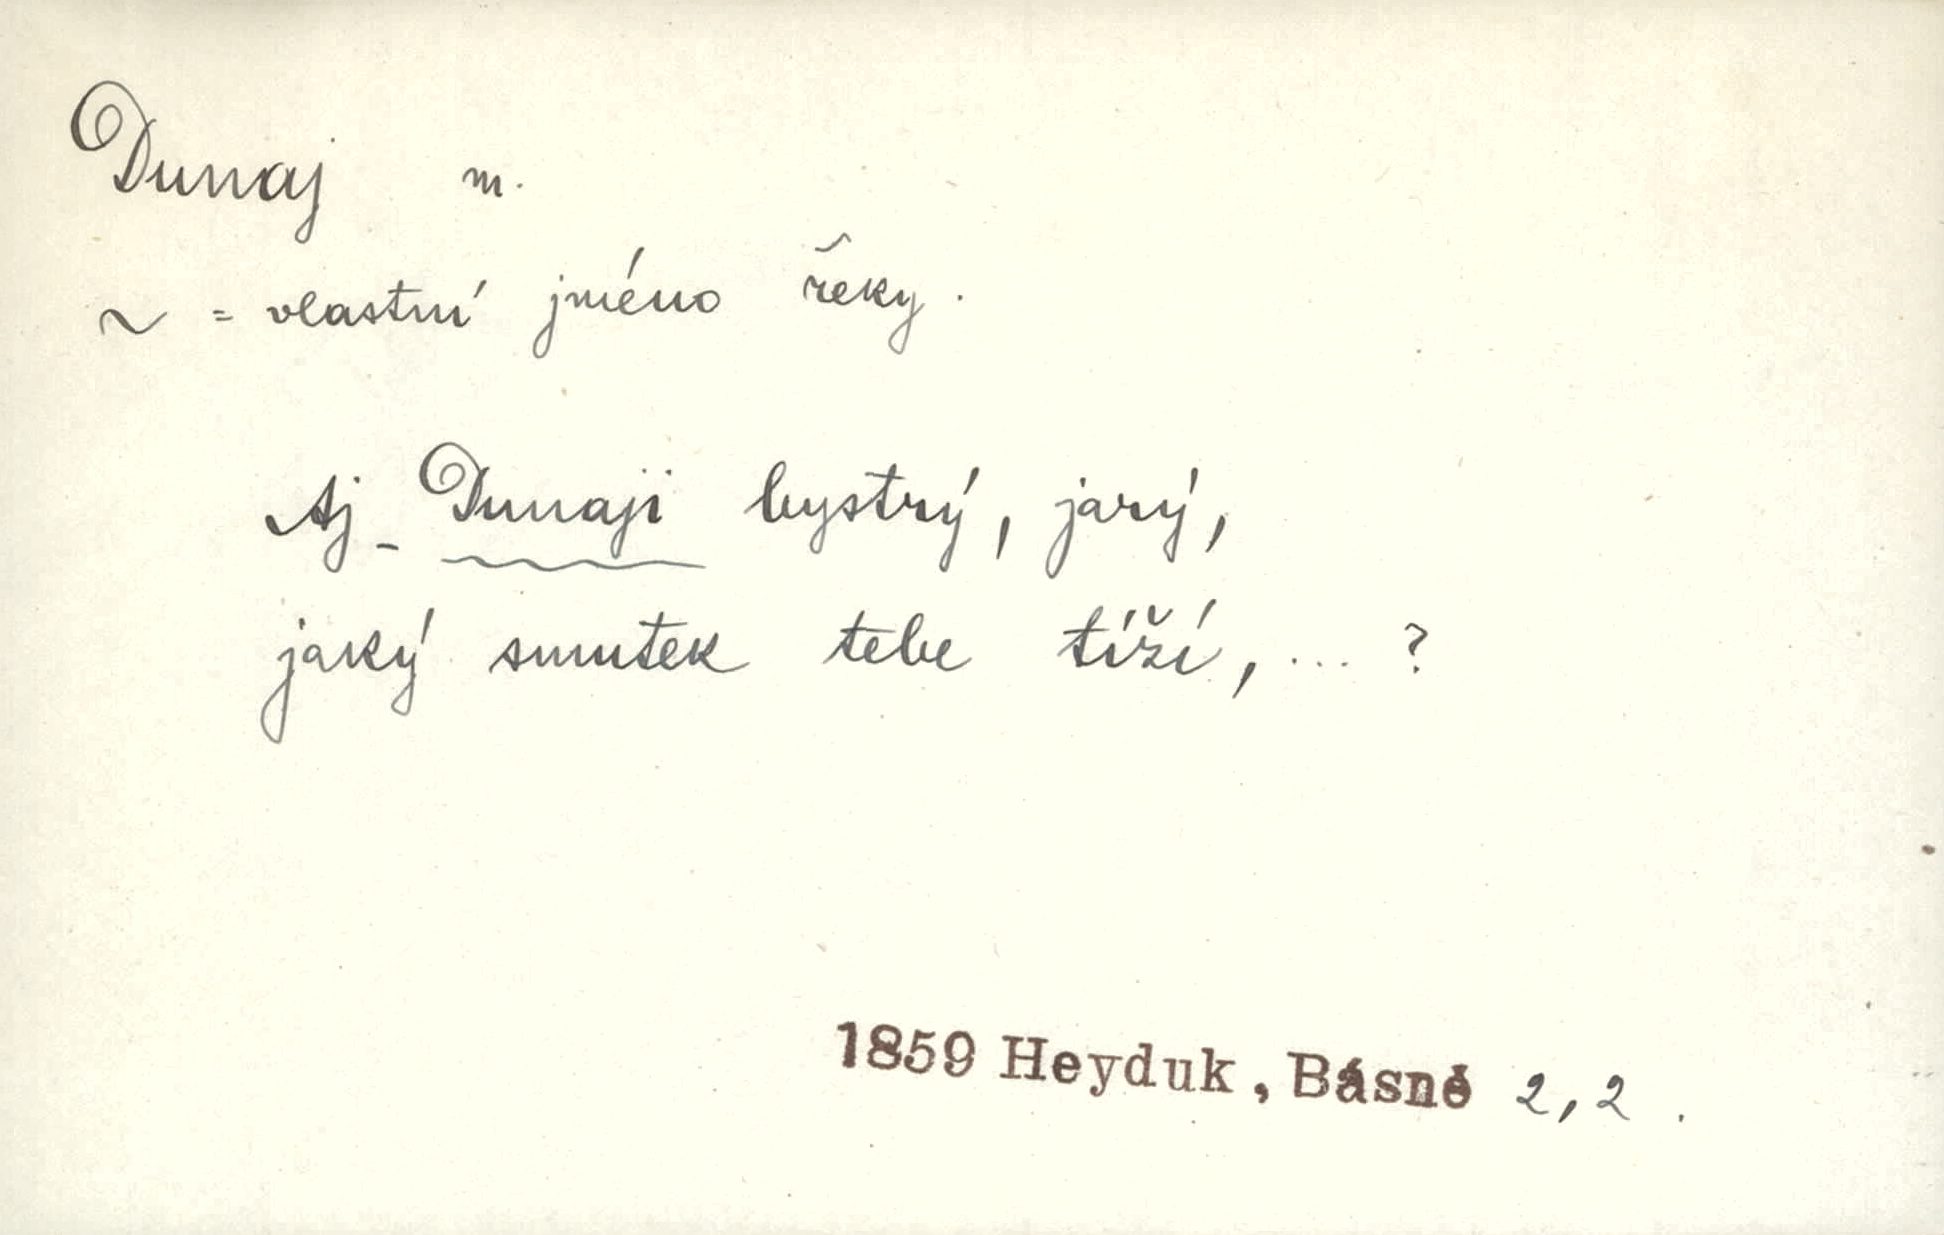 Dunaj m.
~ = vlastní jméno řeky.
Aj - Dunaji bystrý, jarý,
jaký smutek tebe tíží, ... ?
1859 Heyduk, Básně 2, 2.